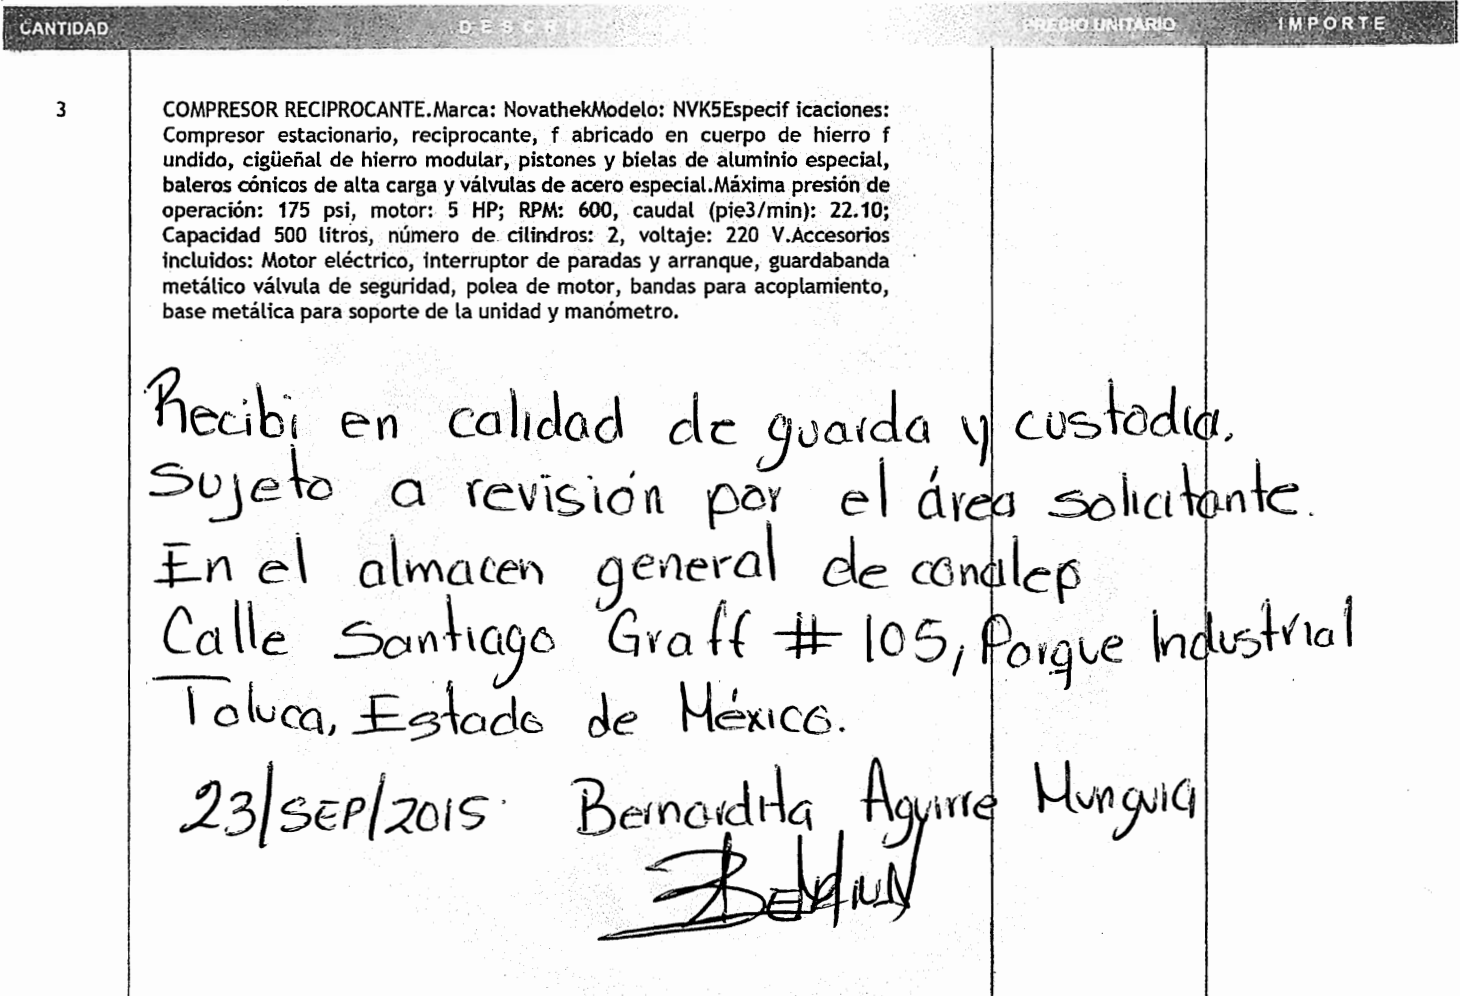 CANTIDAD DESCRI PRECIO UNITARIO IMPORTE
3 COMPRESOR RECIPROCANTE.Marca: NovathekModelo: NVK5Especif icaciones:
Compresor estacionario, reciprocante, f abricado en cuerpo de hierro f
undido, cigüeñal de hierro modular, pistones y bielas de aluminio especial,
baleros cónicos de alta carga y válvulas de acero especial.Máxima presión de
operación: 175 psi, motor: 5 HP; RPM: 600, caudal (pie3/min): 22.10;
Capacidad 500 litros, número de cilindros: 2, voltaje: 220 V.Accesorios
incluidos: Motor eléctrico, interruptor de paradas y arranque, guardabanda
metálico válvula de seguridad, polea de motor, bandas para acoplamiento,
base metálica para soporte de la unidad y manómetro.
Recibi en calidad de guarda y custodia.
Sujeto a revisión por el área solicitante.
En el almacen general de conalep
Calle Santiago Graff # 105, Parque Industrial
Toluca, Estado de México.
23/SEP/2015 Bernardita Aguirre Munguia